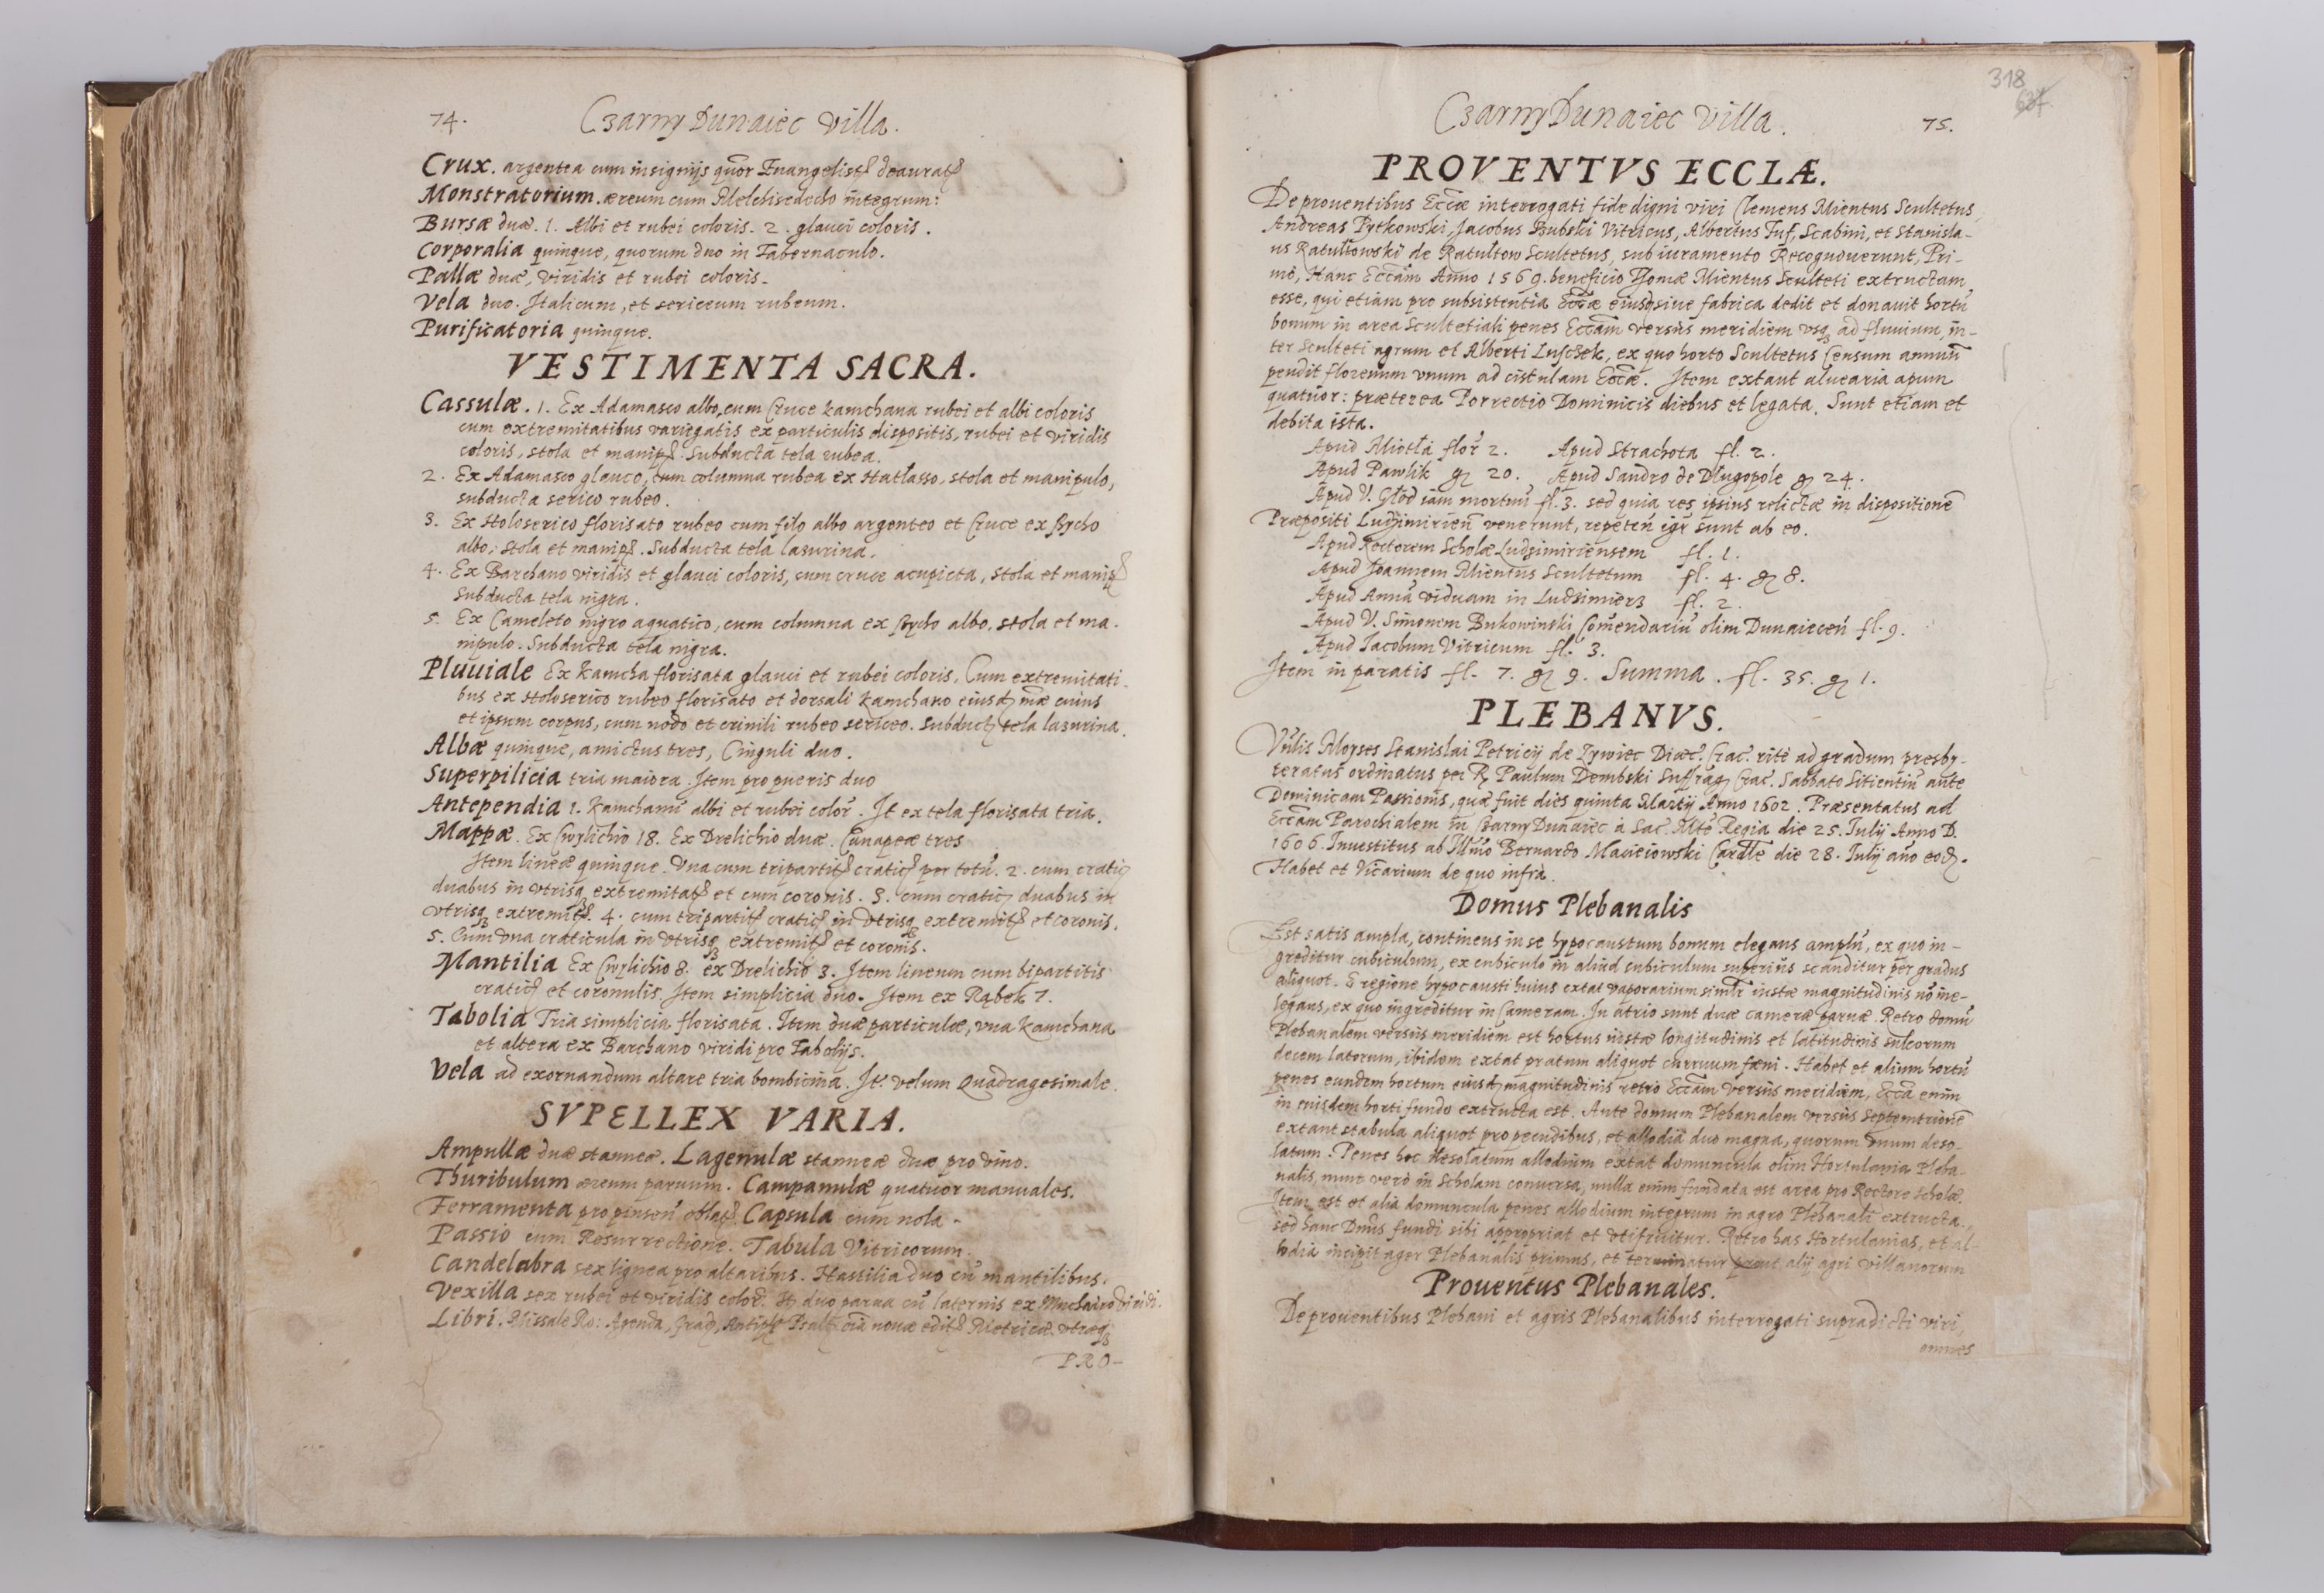 74. Czarny Dunaiec Villa.
Crux. argentea cum insignijs quor Euangelist deaurat
Monstratorium. æreum cum Melchisedecho integrum:
Bursæ duæ. 1. Albi et rubei coloris. 2. glauci coloris.
Corporalia quinque, quorum duo in Tabernaculo.
Pallæ duæ, viridis et rubei coloris.
Vela duo. Italicum, et sericeum rubeum.
Purificatoria quinque.
VESTIMENTA SACRA.
Cassulæ. 1. Ex Adamasco albo, cum Cruce kamchana rubei et albi coloris
cum extremitatibus variegatis ex particulis dispositis, rubei et viridis
coloris, stola et manip. Subducta tela rubea.
2. Ex Adamasco glauco, cum columna rubea ex Hatlasso, stola et manipulo,
subducta serico rubeo.
3. Ex Holoserico florisato rubeo cum filo albo argenteo et Cruce ex
albo, stola et manip. Subducta tela lazurina.
4. Ex Barchano viridis et glauci coloris, cum cruce acupicta, stola et manip
Subducta tela nigra.
5. Ex Cameleto nigro aquatico, cum columna ex albo. stola et ma-
nipulo. Subducta tela nigra.
Pluuiale Ex kamcha florisata glauci et rubei coloris, Cum extremitati-
bus ex Holoserico rubeo florisato et dorsali kamchano eiusd mæ cuius
et ipsum corpus, cum nodo et crinili rubeo sericeo. Subduct tela lazurina.
Albæ quinque, amictus tres, Cinguli duo.
Superpilicia tria maiora. Item pro pueris duo
Antependia 1. Kamchanu albi et rubei color. It ex tela florisata tria.
Mappæ. Ex Cwylichio 18. Ex Drelichio duæ. Canapeæ tres
Item lineæ quinque. Vna cum tripartit cratic per totu. 2. cum cratic
duabus in vtrisq extremitat et cum coronis. 3. cum cratic duabus in
vtrisq extremit. 4. cum tripartit cratic in vtrisq extremit et coronis.
5. Cum vna craticula in vtrisq extremit et coronis.
Mantilia Ex Cwylichio 8. ex Drelichio 3. Item lineum cum bipartitis
cratic et coronulis Item simplicia duo. Item ex Rąbek 1.
Tabolia Tria simplicia florisata. Item duæ particulæ, vna kamchana
et altera ex Barchano viridi pro Tabolijs.
Vela ad exornandum altare tria bombicina. It velum Quadragesimale.
SVPELLEX VARIA.
Ampullæ duæ stanneæ. Lagenulæ stanneæ duæ pro vino.
Thuribulum æreum paruum. Campanulæ quatuor manuales.
Ferramenta pro pinsen oblat. Capsula cum nola.
Passio cum Resurrectione. Tabula Vitricorum.
Candelabra sex lignea pro altaribus. Hastilia duo cu mantilibus.
Vexilla sex rubei et viridis color. It duo parua cu laternis ex Muchairo viridi.
Libri. Missale Ro: Agenda, Grad, Antiph Psalt oia nouæ edit Metricæ vtræq
PRO-
318
637
Czarny Dunaiec Villa. 75.
PROVENTVS ECCLÆ.
De prouentibus Eccæ interrogati fide digni viri Clemens Mientus Scultetus,
Andreas Pytkowski, Jacobus Bubski Vitricus, Albertus Tuf, Scabini, et Stanisla-
us Ratułtowski de Ratułtow Scultetus, sub iuramento Recognouerunt, Pri-
mò, Hanc Eccam Anno 1569. beneficio Thomæ Mientus Sculteti extructam
esse, qui etiam pro subsistentia Eccæ eiusq siue fabrica dedit et donauit hortu
bonum in area Scultetiali penes Eccam versus meridiem vsq ad fluuium, in-
ter Sculteti agrum et Alberti Luszczek, ex quo horto Scultetus Censum annuu
pendit florenum vnum ad cistulam Eccæ. Item extant aluearia apum
quatuor: præterea Porrectio Dominicis diebus et legata. Sunt etiam et
debita ista.
Apud Miotła flor 2. Apud Strachota fl. 2.
Apud Pawlik g 20. Apud Sandro de Długopole g 24.
Apud V. Głod iam mortuu fl. 3. sed quia res ipsius relictæ in dispositione
Præpositi Ludzimirien venerunt, repeten igr sunt ab eo.
Apud Rectorem Scholæ Ludzimiriensem fl. 1.
Apud Joannem Mientus Scultetum fl. 4. g 8.
Apud Anna viduam in Ludzimierz fl. 2.
Apud V. Simonem Bukowinski Comendariu olim Dunaiecen fl. 9.
Apud Iacobum Vitricum fl. 3.
Item in paratis fl. 7. g 9. Summa. fl. 35. g 1.
PLEBANVS.
Vnlis Moyses Stanislai Petricij de Zywiec Diæc. Crac. ritè ad gradum presby-
teratus ordinatus per R Paulum Dembski Suffrag Crac. Sabbato Sitientiu ante
Dominicam Passionis, quæ fuit dies quinta Martij Anno 1602. Præsentatus ad
Eccam Parochialem in Czarny Dunaiec à Sac. Mte Regia die 25. Iulij Anno D.
1606. Inuestitus ab Illmo Bernardo Macieiowski Cardle die 28. Iulij año eod.
Habet et Vicarium de quo infrà.
Domus Plebanalis
Est satis ampla, continens in se hypocaustum bonum elegans amplu, ex quo in-
greditur cubiculum, ex cubiculo in aliud cubiculum superius scanditur per gradus
aliquot. E regione hypocausti huius extat vaporarium simlr iustæ magnitudinis no ine-
legans, ex quo ingreditur in Cameram. In atrio sunt duæ cameræ paruæ. Retro domu
Plebanalem versus meridiem est hortus iustæ longitudinis et latitudinis sulcorum
decem latorum, ibidem extat pratum aliquot curruum fæni. Habet et alium hortu
penes eundem hortum eiusd magnitudinis retro Eccam versus meridiem, Ecca enim
in eiusdem horti fundo extructa est. Ante domum Plebanalem versus septemtrione
extant stabula aliquot pro pecudibus, et allodia duo magna, quorum vnum deso-
latum. Penes hoc desolatum allodium extat domuncula olim Hortulania Pleba-
nalis, nunc verò in Scholam conuersa, nulla enim fundata est area pro Rectore Scholæ.
Item est et alia domuncula penes allodium integrum in agro Plebanali extructa.
sed hanc Dnus fundi sibi appropriat et vtifruitur. Retro has Hortulanias, et al-
lodia incipit ager Plebanalis primus, et terminatur prout alij agri villanorum
Prouentus Plebanales.
De prouentibus Plebani et agris Plebanalibus interrogati supradicti viri,
omnes